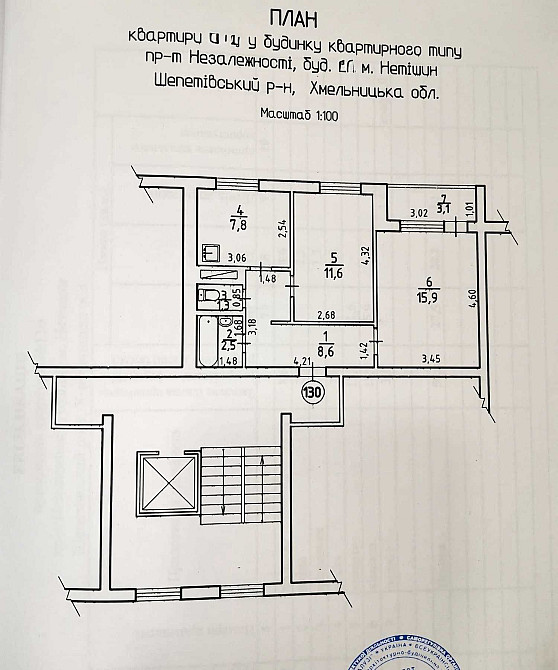 ПЛАН
квартири у будинку квартирного типу
пр-т Незалежності, буд. м. Нетішин
Шепетівський р-н, Хмельницька обл.
Масштаб 1:100
4
7,8
2,54
3,06
1,48
5
11,6
4,32
2,68
7
3,1
3,02
1,01
6
15,9
4,60
3,45
3
1,3
0,85
2
2,5
1,68
1,48
3,18
1
8,6
4,21
1,42
130
УКРАЇНА